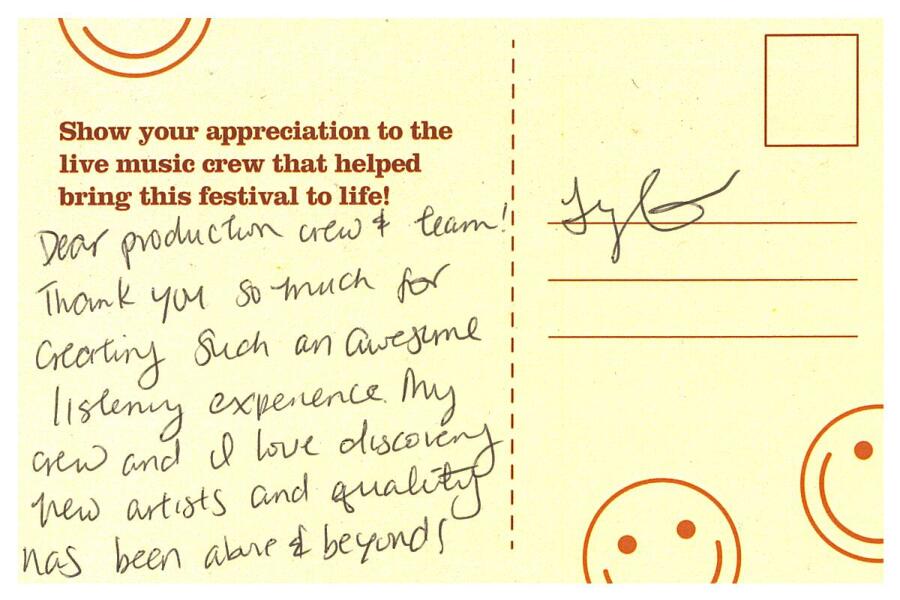 Show your appreciation to the
live music crew that helped
bring this festival to life!
Dear production crew & team!
Thank you so much for
creating such an awesome
listening experience. My
crew and I love discovering
new artists and quality
has been above & beyond!
Tyler